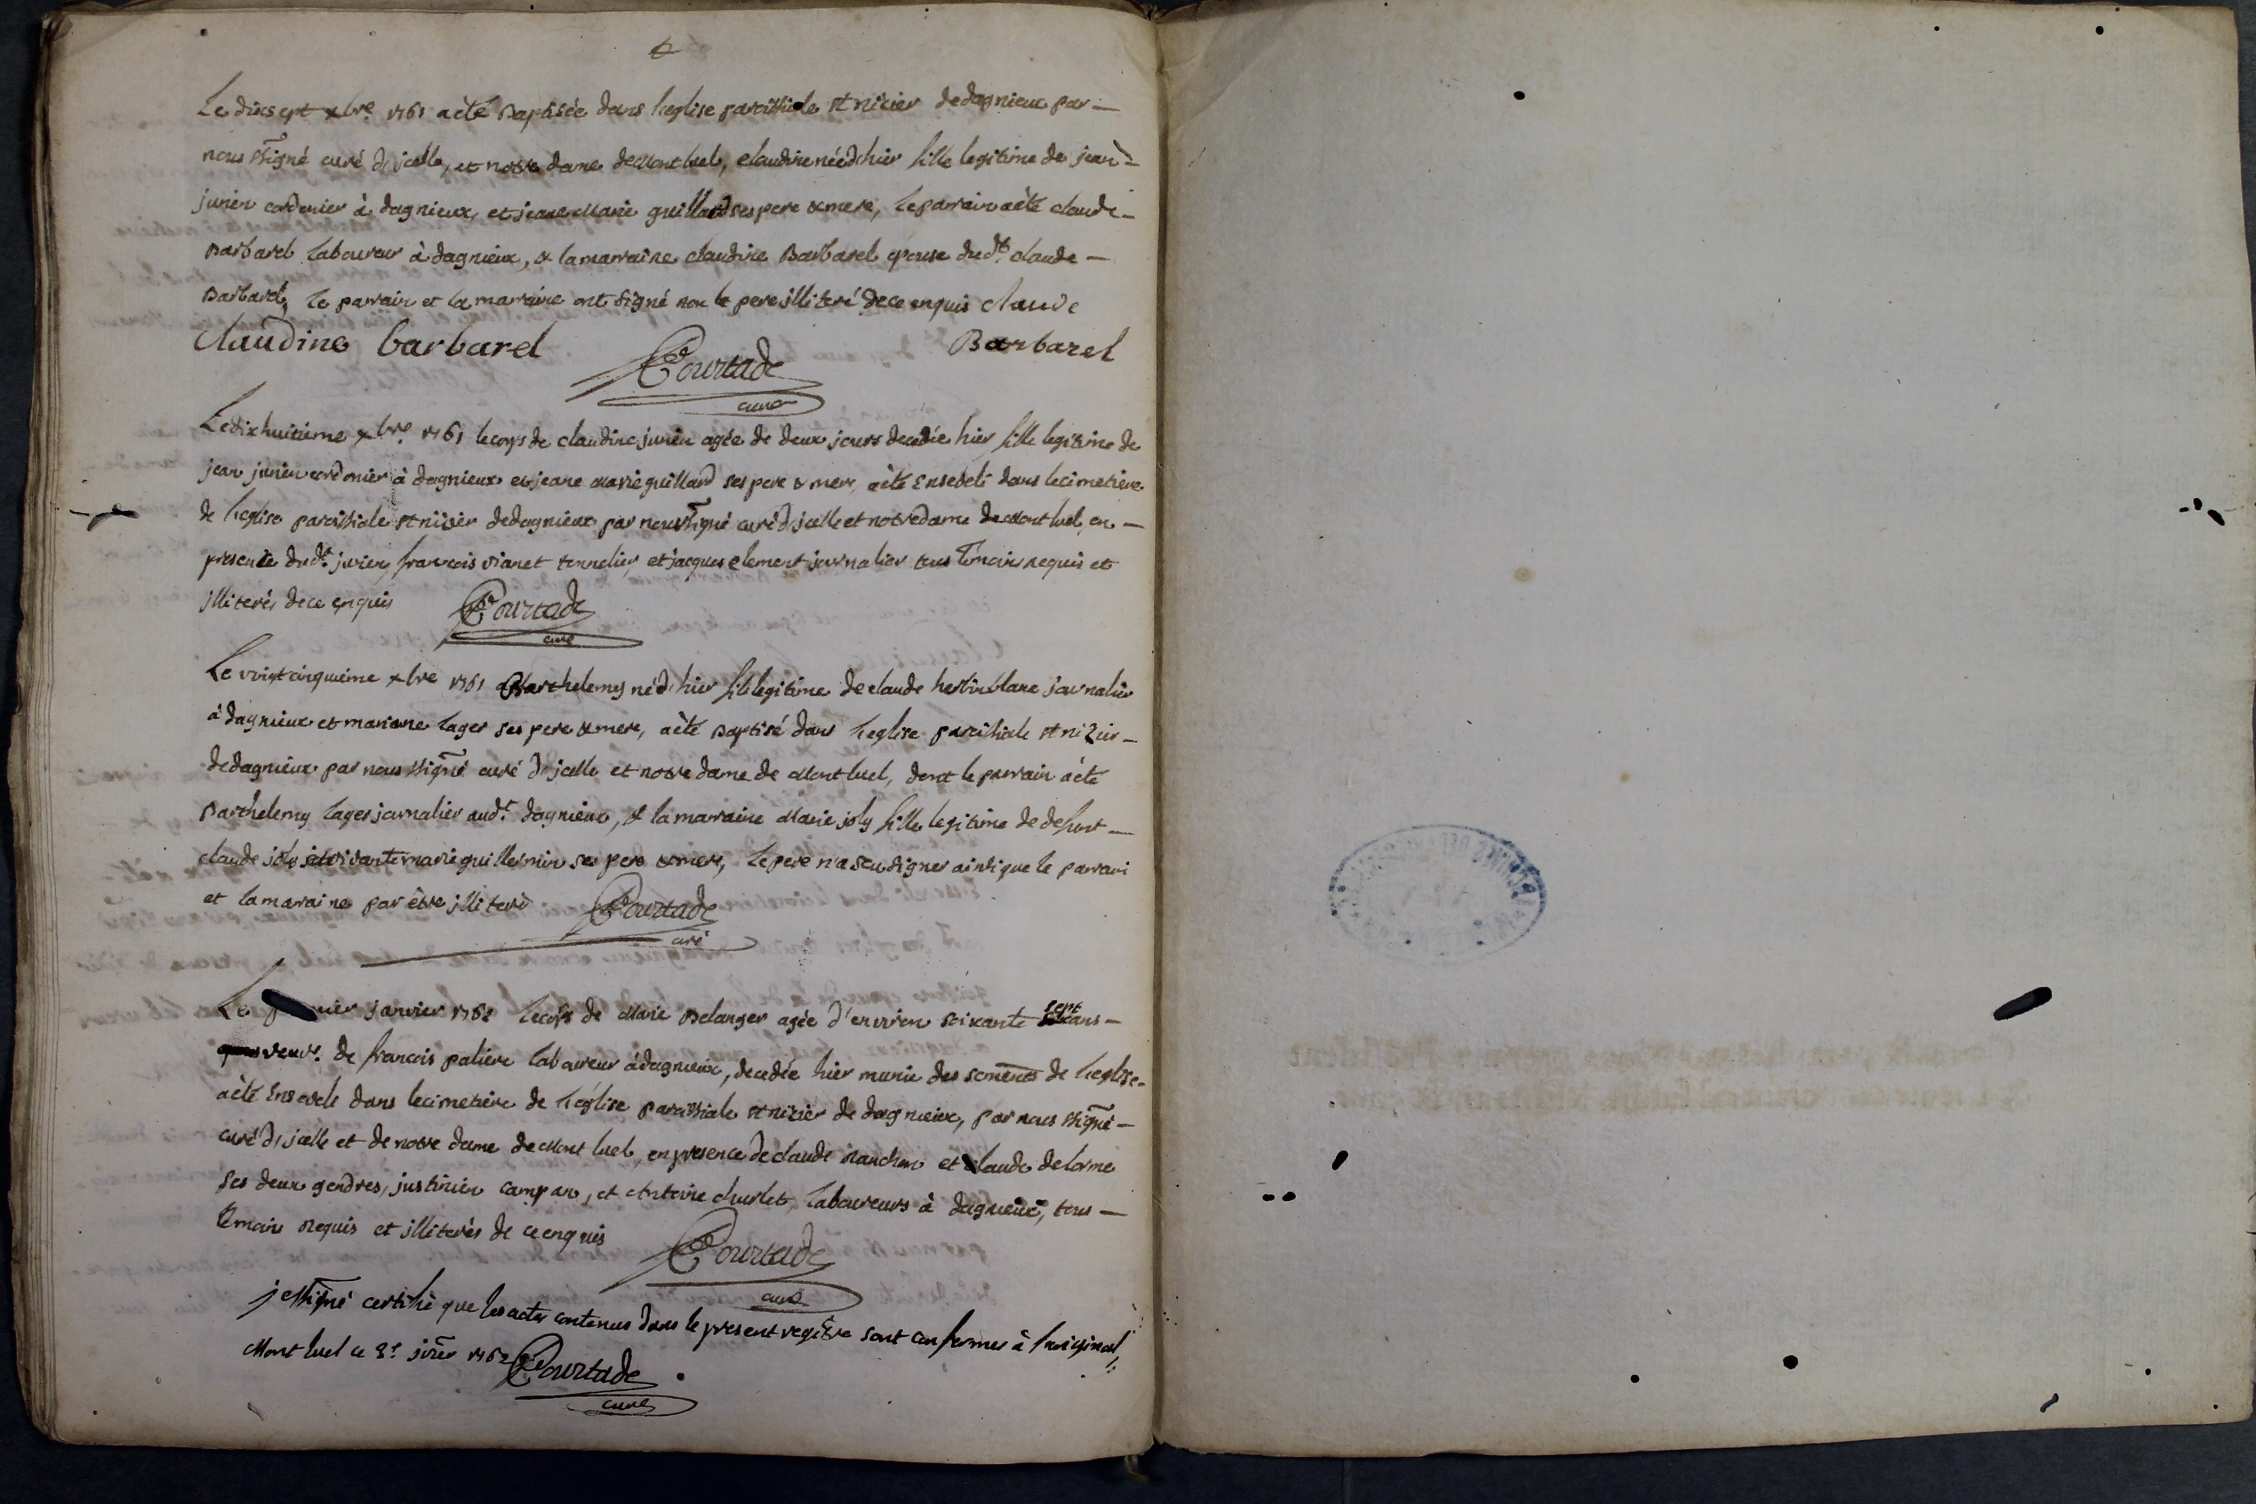 Le dixsept xbre 1761 a èté Baptisée dans l'eglise paroissiale st nizier de dagnieux par
nous ssigné curé d'jcelle, et notre dame de Montluel, claudine née d'hier fille legitime de jean
junin cordonier à dagnieux, et jeane Marie guillard ses pere & mere, le parrain a èté claude
Barbarel laboureur à dagnieux, & la marraine claudine Barbarel epouse dudt claude
Barbarel, le parrain et la marraine ont signé non le pere illiteré de ce enquis claude
Claudine barbarel Barbarel
Courtade
curé
Le dixhuitième xbre 1761 le corps de claudine junin agée de deux jours decedée hier fille legitime de
jean junin cordonier à dagnieux et jeane Marie guillard ses pere & mere, a èté Enseveli dans le cimetière
de l'eglise paroissiale st nizier de dagnieux par nous ssigné curé d'jcelle et notre dame de Montluel, en
presence dudt junin, francois vianet tonnelier, et jacques clement journalier tous temoins requis et
illiterés de ce enquis Courtade
curé
Le vint cinquième xbre 1761 Barthelemy né d'hier fils legitime de claude journalier
à dagnieux et mariane lager ses pere & mere, a èté Baptisé dans l'eglise paroissiale st nizier
de dagnieux par nous ssigné curé d'jcelle et notre dame de Montluel, dont le parrain a èté
Barthelemy lager journalier audt dagnieux, & la marraine Marie joly fille legitime de defunt
claude joly et vivante marie guillermin ses pere & mere, le pere n'a sçu signer ainsi que le parrain
et la maraine par être illiteré Courtade
curé
Le janvier 1762 le corps de Marie Belanger agée d'environ soixante sept ans
veuve de francois palière laboureur à dagnieux, decedée hier munie des sements de l'eglise
a èté Enseveli dans le cimetière de l'église paroissiale st nizier de dagnieux, par nous ssigné
curé d'jcelle et de notre dame de Montluel, en presence de claude et claude delorme
ses deux gendres, justinien campan, et Antoine churlet, laboureurs à dagnieux, tous
temoins requis et illiterés de ce enquis Courtade
curé
je ssigné certifie que les actes contenus dans le present registre sont conformes à l'original,
Montluel ce 3e jvier 1762 Courtade
curé